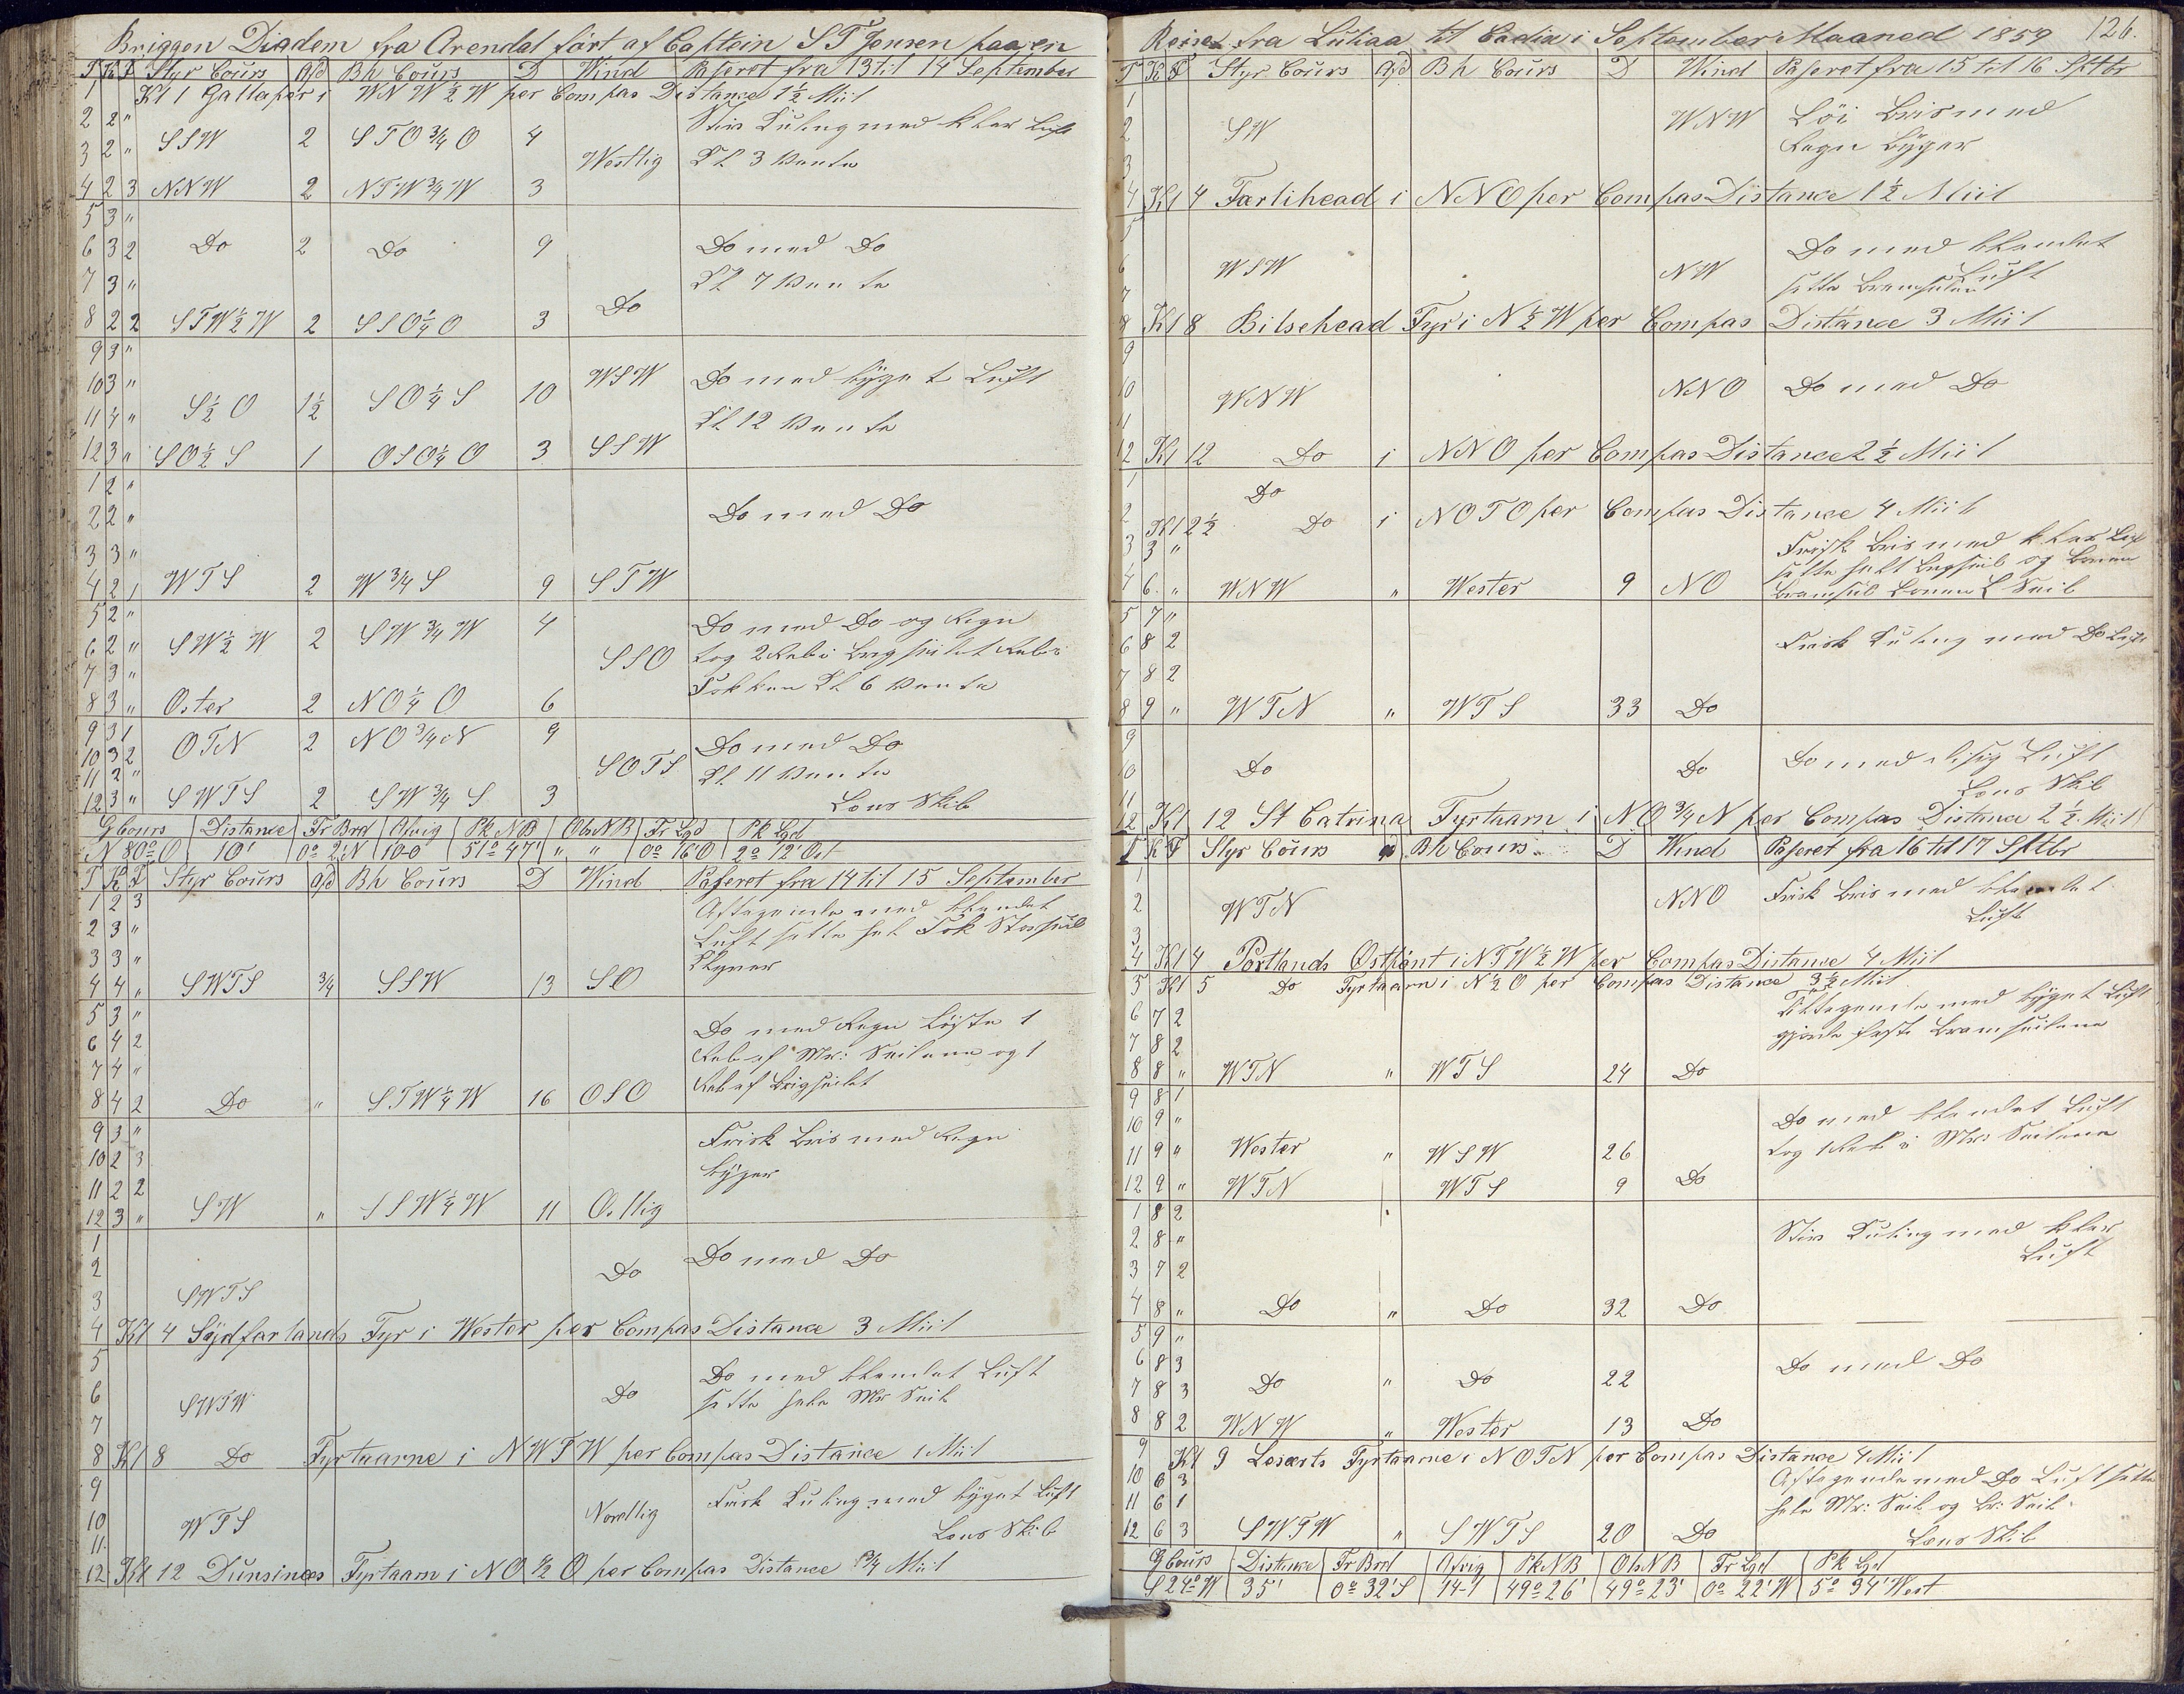 Briggen Diadem fra Arendal fört af Captein S T Jensen paa en
T K F Styr Cours Afd Bh Cours D Wind Paseret fra 13 til 14 September
1 Kl 1 Gallaper i WNW ½ W per Compas Distance 1½ Miil
2 2 " Stiv Kuling med klar Luft
3 2 " SSW 2 STO ¾ O 4 Westlig Kl 3 vendte
4 2 3 NNW 2 NTW ¾ W 3
5 3 "
6 3 2 Do 2 Do 9 Do med Do
7 3 " Kl 7 vendte
8 2 2 STW ½ W 2 SSO ¼ O 3 Do
9 3 "
10 3 " WSW Do med byget Luft
11 4 " S ½ O 1½ SO ¼ S 10 Kl 12 vendte
12 3 " SO ½ S 1 OSO ¼ O 3 SSW
1 2 "
2 2 " Do med Do
3 3 "
4 2 1 WTS 2 W ¾ S 9 STW
5 2 " Do med Do og Regn
6 2 " SW ½ W 2 SW ¾ W 4 SSO tog 2 Reb i Brigseilet Reb i
7 3 " Fokken Kl 6 vendte
8 3 " Oster 2 NO ¼ O 6
9 3 1 OTN 2 NO ¾ N 9 Do med Do
10 3 2 SOTS Kl 11 vendte
11 2 "
12 3 " SWTS 2 SW ¾ S 3 Lens Skib
G Cours Distance Fr Brd Afvig Pk NB Obs NB Fr Lgd Pk Lgd
N 80° O 10' 0° 2' N 10-0 51° 47' " " 0° 16' O 2° 12' Ost
T K F Styr Cours Afd Bh Cours D Wind Paseret fra 14 til 15 September
1 2 3 Aftagende med blandet
2 3 " Luft satte hel Fok Storseil
3 3 " Klyver
4 4 " SWTS ¾ SSW 13 SO
5 3 " Do med Regn löste 1
6 4 2 Reb af Mr: Seilene og 1
7 4 " Reb af Brigseilet
8 4 2 Do " STW ¼ W 16 OSO
9 3 " Frisk Bris med Regn
10 2 3 byger
11 2 2
12 3 " SW " SSW ¼ W 11 Ostlig
1
2 Do Do med Do
3 SWTS
4 Kl 4 Sydforlands Fyr i Wester per Compas Distance 3 Miil
5 Do med blandet Luft
6 SWTW Do satte hele Mr Seil
7
8 Kl 8 Do Fyrtaarne i NWTW per Compas Distance 1 Miil
9 Frisk Kuling med byget Luft
10 WTS Nordlig
11 Lens Skib
12 Kl 12 Dunsinæs Fyrtaarn i NO ½ O per Compas Distance ¾ Miil
Reise fra Luliaa til Cadix i September Maaned 1859 126.
T K F Styr Cours Afd Bh Cours D Wind Paseret fra 15 til 16 Sptbr
1 WNW Löi Bris med
2 SW Regn byger
3
4 Kl 4 Farlihead i NNO per Compas Distance 1½ Miil
5 Do med blandet
6 WSW NW Luft
7 satte Bramseilene
8 Kl 8 Bilsehead Fyr i N ½ W per Compas Distance 3 Miil
9
10 WNW NNO Do med Do
11
12 Kl 12 Do i NNO per Compas Distance 2½ Miil
1 Do
2 Kl 2½ Do i NOTO per Compas Distance 4 Miil
3 3 " Frisk Bris med klar Luft
satte helt Brigseil og Boven
4 6 " WNW " Wester 9 NO Bramseil Boven L Seil
5 7 "
6 8 2 Frisk Kuling med Do Luft
7 8 2
8 9 " WTN " WTS 33 Do
9 Do med disig Luft
10 Do Do
11 Lens Skib
12 Kl 12 St Catrina Fyrtaarn i NO ¾ N per Compas Distance 2½ Miil
T K F Styr Cours Afd Bh Cours D Wind Paseret fra 16 til 17 Sptbr
1 Frisk Bris med blandet
2 WTN NNO Luft
3
4 Kl 4 Portlands Ostpünt i NTW ½ W per Compas Distance 4 Miil
5 Kl 5 Do Fyrtaarn i N ½ O per Compas Distance 3½ Miil
6 7 2 Tiltagende med byget Luft
7 8 2 gjorde fast Bramseilene
8 8 " WTN " WTS 24 Do
9 8 1
10 9 " Do med blandet Luft
11 9 " Wester " WSW 26 tog 1 Reb i Mrs Seilene
12 9 " WTN WTS 9 Do
1 8 2
2 8 " Stiv Kuling med klar
3 7 2 Luft
4 8 " Do " Do 32 Do
5 9 "
6 8 3 Do med Do
7 8 3 Do " Do 22
8 8 2 WNW " Wester 13 Do
9 Kl 9 Leserts Fyrtaarne i NOTN per Compas Distance 4 Miil
10 6 3 Aftagende med Do Luft satte
11 6 1 hele Mr: Seil og Br: Seil
12 6 3 SWTW " SWTS 20 Do Lens Skib
G Cours Distance Fr Brd Afvig Pk NB Obs NB Fr Lgd Pk Lgd
S 24° W 35' 0° 32' S 14-1 49° 26' 49° 23' 0° 22' W 5° 34' West